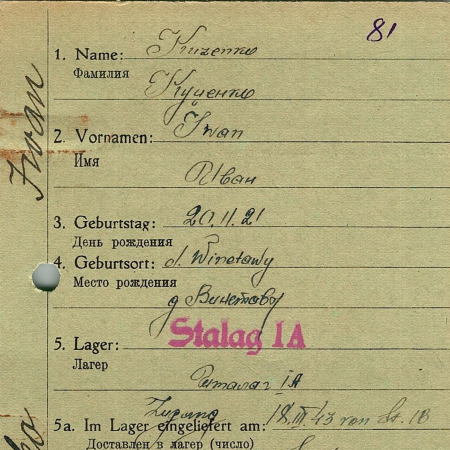 81
1. Name: Kuzenko
Фамилия
Куценко
2. Vornamen: Iwan
Имя
Иван
3. Geburtstag: 20.11.21
День рождения
4. Geburtsort: d. Winetawy
Место рождения
д Винетовы
5. Lager: Stalag IA
Лагер
Шталаг IA
5a. Im Lager eingeliefert am: 18.III.43 von St. IB
Доставлен в лагер (число)
Iwan